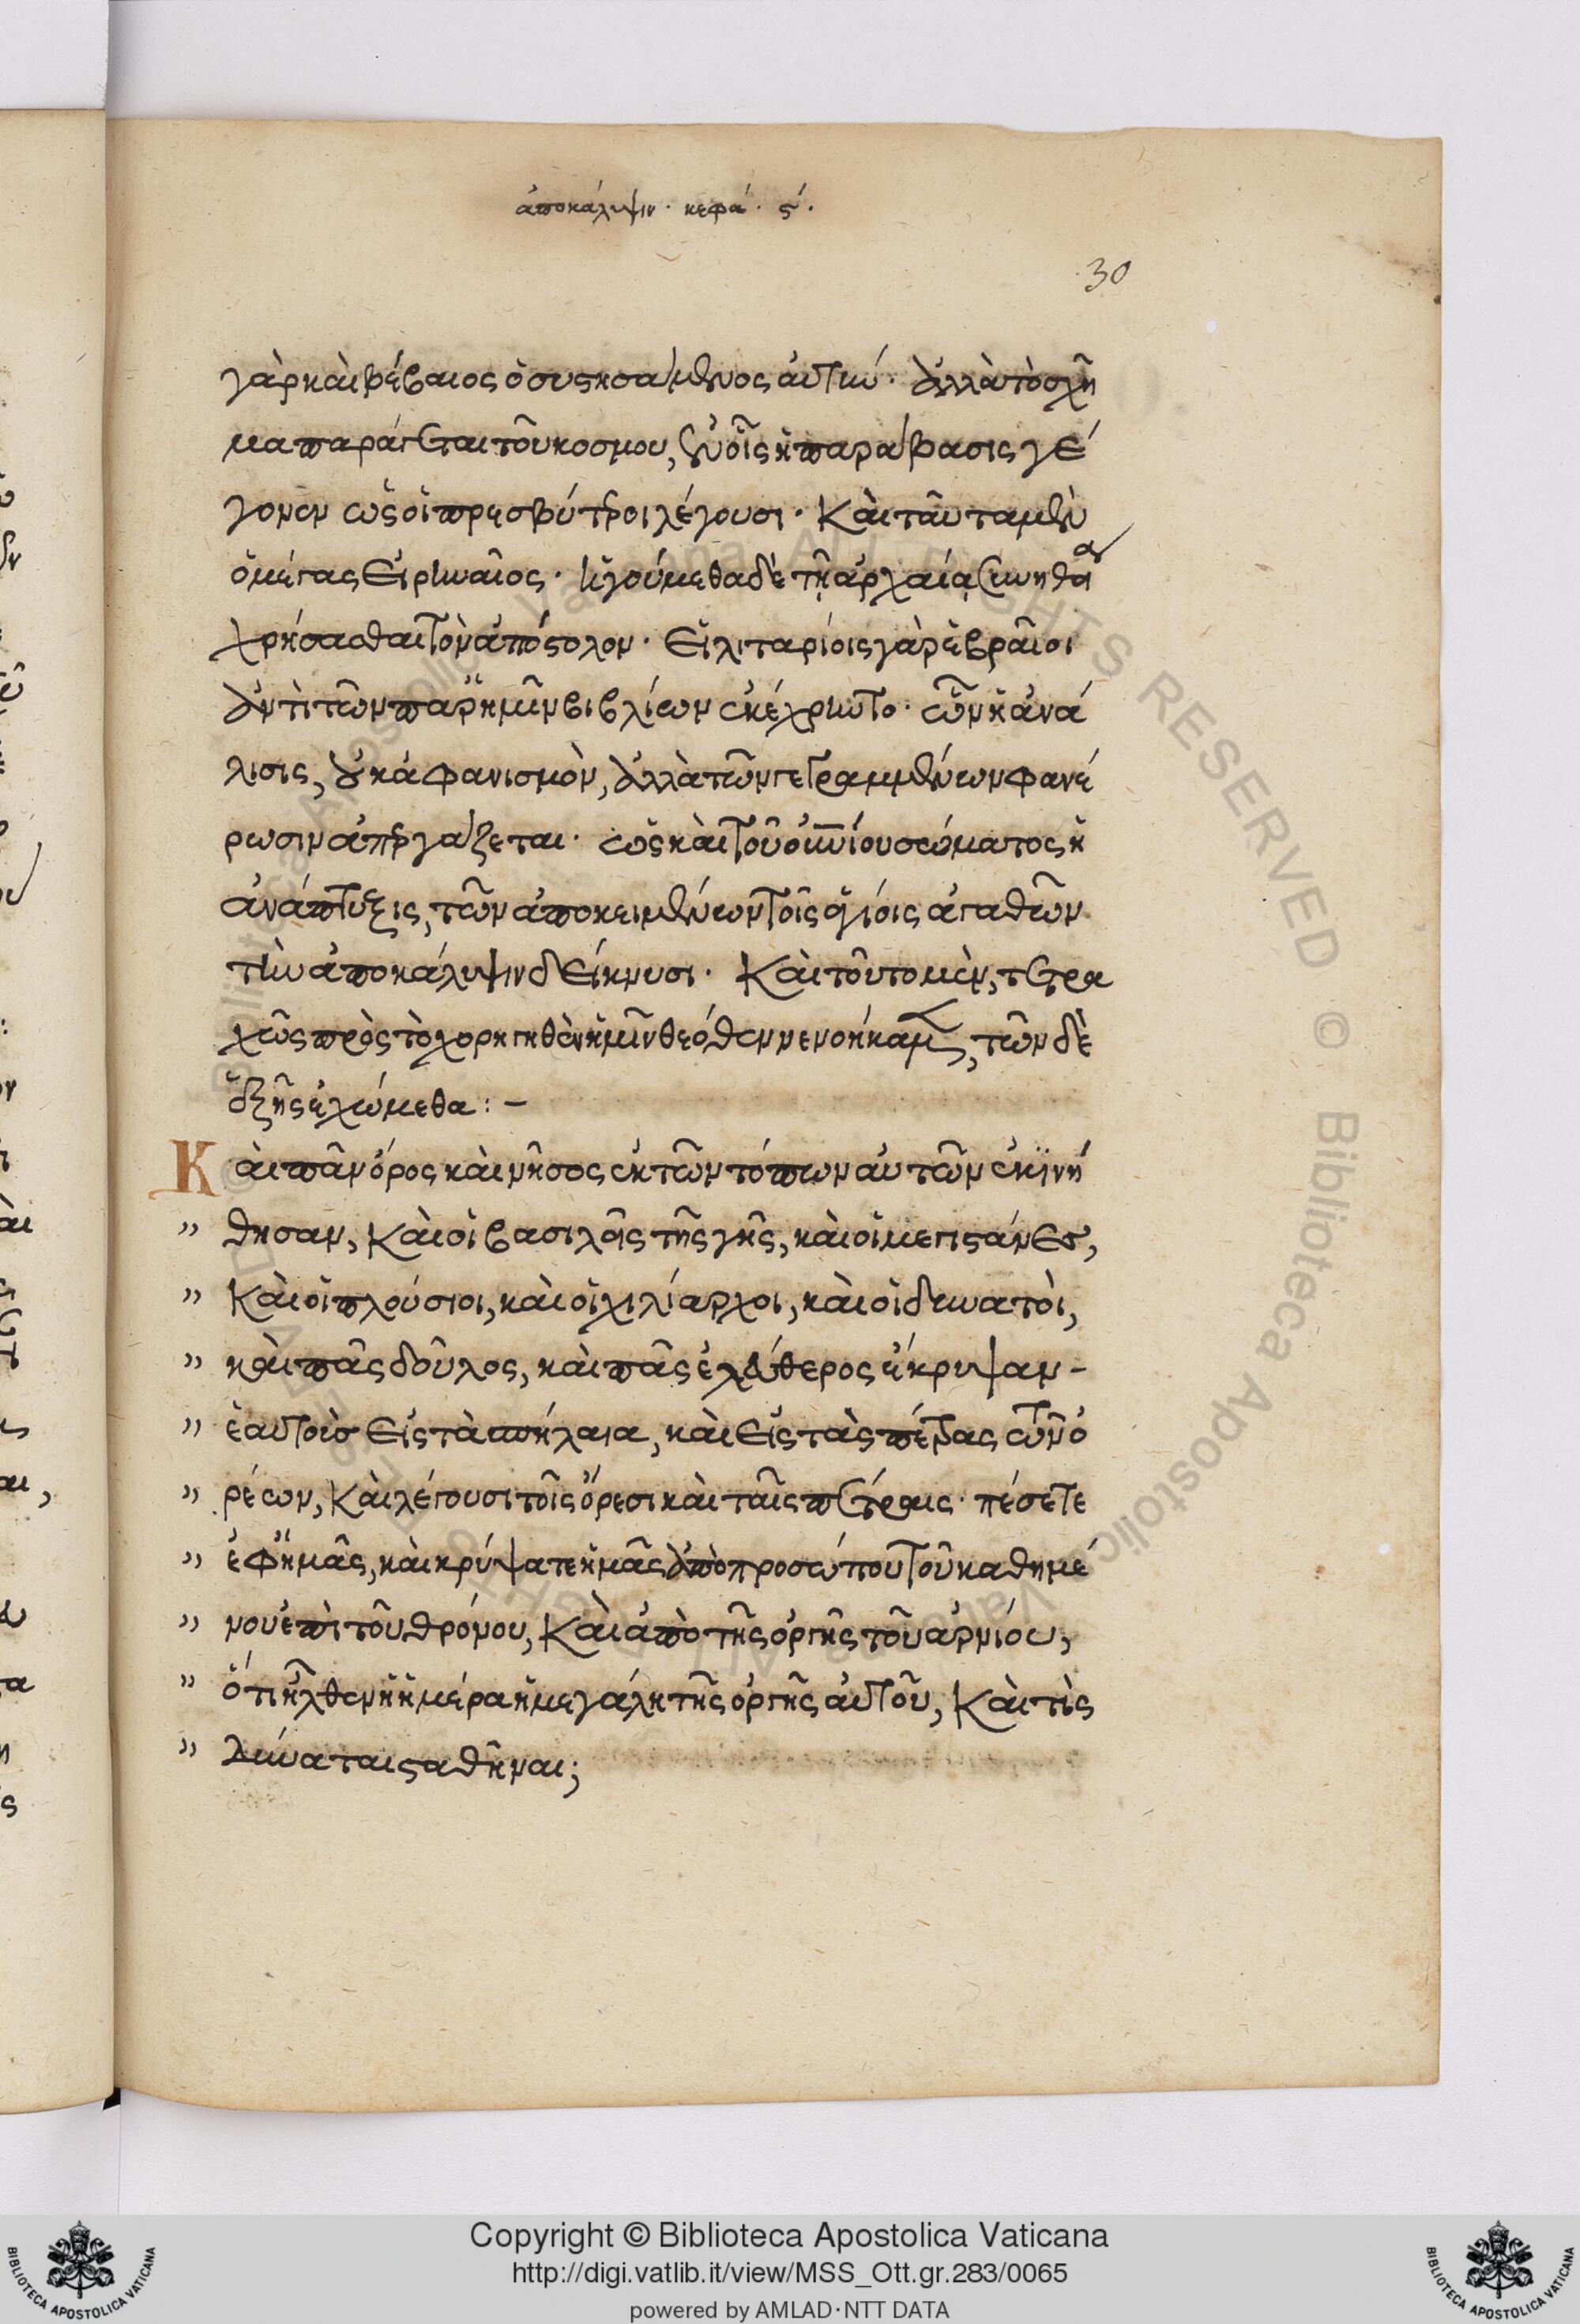 ἀποκάλυψιν · κεφά · ϛ΄ ·
30
γὰρ καὶ βέβαιος ὁ συστησάμενος αὐτήν · ἀλλὰ τὸ σχῆ
μα παράγεται τοῦ κόσμου, ἐν οἷς ἡ παράβασις γέ
γονεν ὡς οἱ πρεσβύτεροι λέγουσι · Καὶ ταῦτα μὲν
ὁ μέγας Εἰρηναῖος · ἡγούμεθα δὲ τῇ ἀρχαίᾳ συνηθείᾳ
χρήσασθαι τὸν ἀπόστολον · Εἰλιταρίοις γὰρ ἑβραῖοι
ἀντὶ τῶν παρ' ἡμῖν βιβλίων ἐκέχρηντο · ὧν ἡ ἀνά
λισις, οὐκ ἀφανισμὸν, ἀλλὰ τῶν γεγραμμένων φανέ
ρωσιν ἀπεργάζεται · ὡς καὶ τοῦ οὐνίου σώματος ἡ
ἀνάπτυξις, τῶν ἀποκειμένων τοῖς ἁγίοις ἀγαθῶν
τὴν ἀποκάλυψιν δείκνυσι · Καὶ τοῦτο μὲν, τετρα
χῶς πρὸς τὸ χορηγηθὲν ἡμῖν θεόθεν νενοήκαμεν, τῶν δὲ
ἑξῆς ἐχώμεθα : –
Καὶ πᾶν ὄρος καὶ νῆσος ἐκ τῶν τόπων αὐτῶν ἐκινή
” θησαν, Καὶ οἱ βασιλεῖς τῆς γῆς, καὶ οἱ μεγιστάνες,
” Καὶ οἱ πλούσιοι, καὶ οἱ χιλίαρχοι, καὶ οἱ δυνατοὶ,
” καὶ πᾶς δοῦλος, καὶ πᾶς ἐλεύθερος ἔκρυψαν -
” ἑαυτοὺς Εἰς τὰ σπήλαια, καὶ Εἰς τὰς πέτρας τῶν ὀ
” ρέων, Καὶ λέγουσι τοῖς ὄρεσι καὶ ταῖς πέτραις · πέσετε
” ἐφ' ἡμᾶς, καὶ κρύψατε ἡμᾶς ἀπὸ προσώπου τοῦ καθημέ
” νου ἐπὶ τοῦ θρόνου, Καὶ ἀπὸ τῆς ὀργῆς τοῦ ἀρνίου,
” ὅτι ἦλθεν ἡ ἡμέρα ἡ μεγάλη τῆς ὀργῆς αὐτοῦ, Καὶ τὶς
” δύναται σταθῆναι;
Copyright © Biblioteca Apostolica Vaticana
http://digi.vatlib.it/view/MSS_Ott.gr.283/0065
powered by AMLAD·NTT DATA